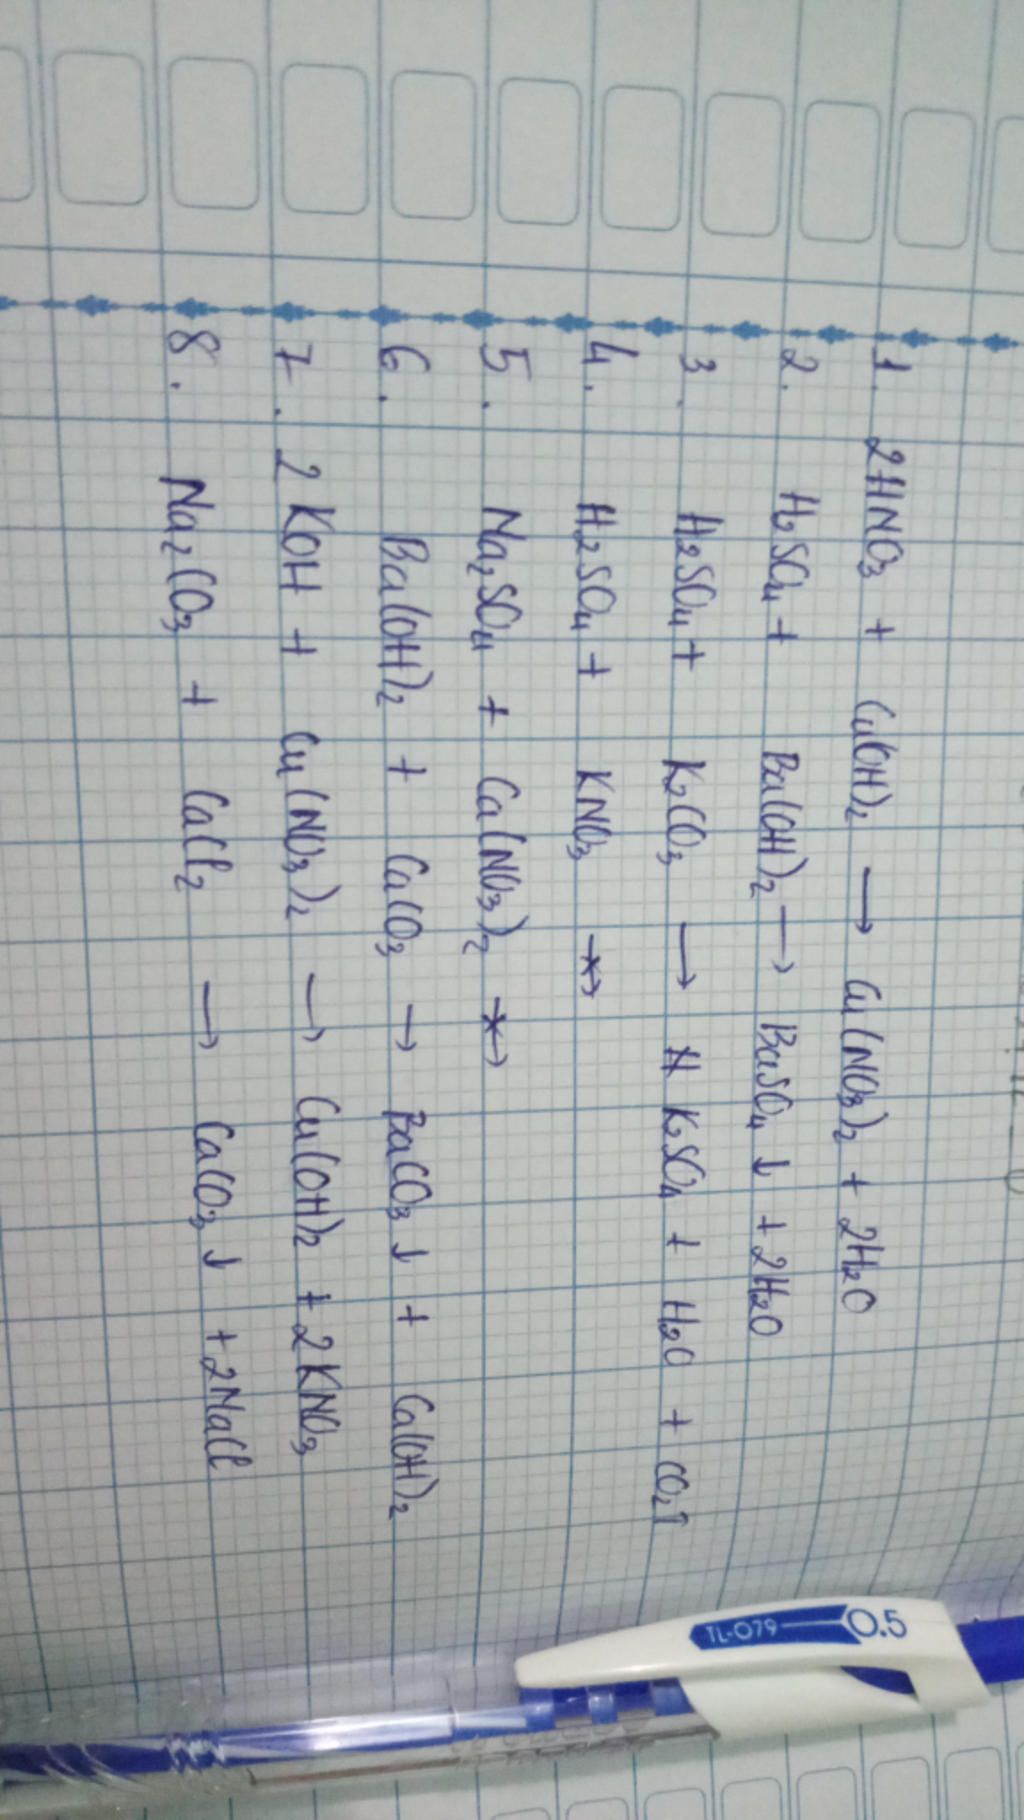 1. 2HNO₃ + Cu(OH)₂ → Cu(NO₃)₂ + 2H₂O
2. H₂SO₄ + Ba(OH)₂ → BaSO₄ ↓ + 2H₂O
3. H₂SO₄ + K₂CO₃ → K₂SO₄ + H₂O + CO₂↑
4. H₂SO₄ + KNO₃ ↛
5. Na₂SO₄ + Ca(NO₃)₂ ↛
6. Ba(OH)₂ + CaCO₃ → BaCO₃ ↓ + Ca(OH)₂
7. 2KOH + Cu(NO₃)₂ → Cu(OH)₂ + 2KNO₃
8. Na₂CO₃ + CaCl₂ → CaCO₃ ↓ + 2NaCl
TL-079 0.5